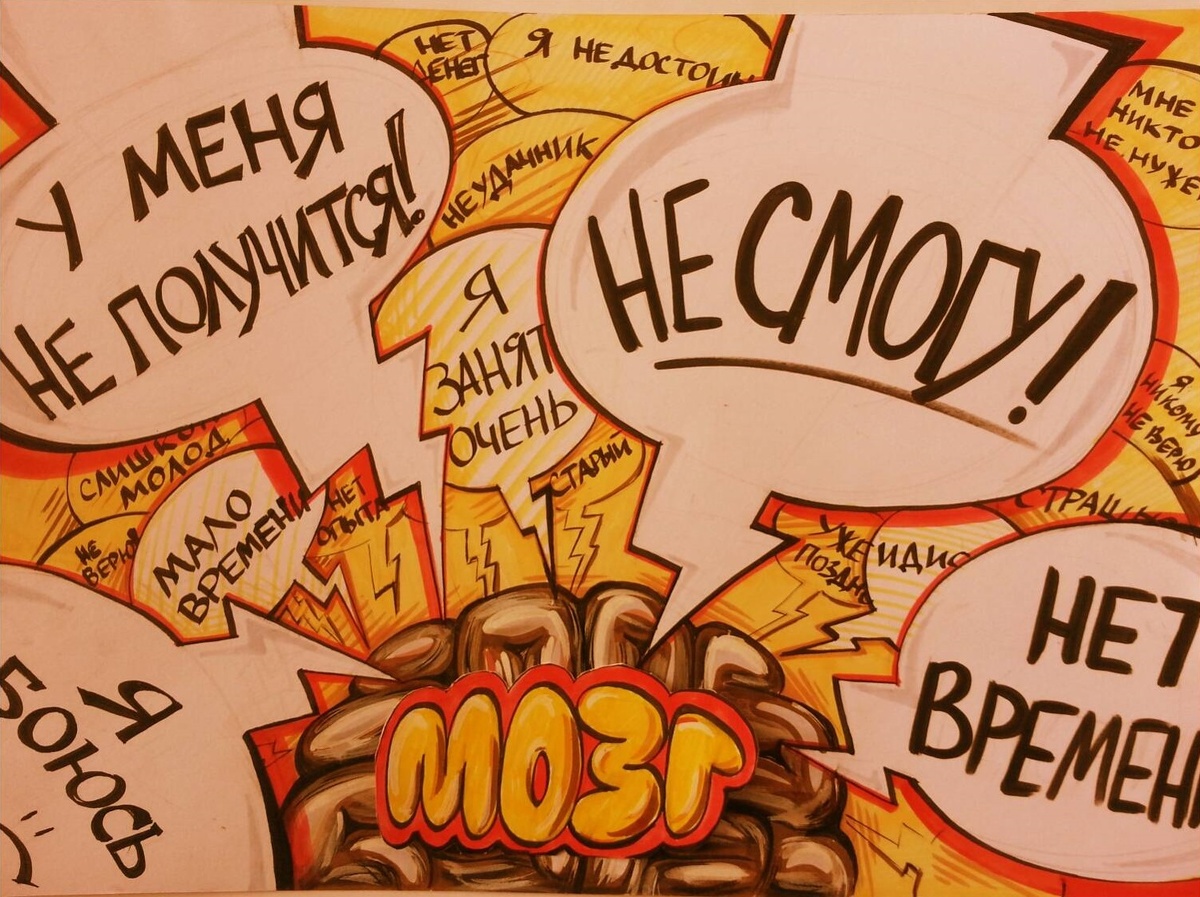 НЕТ
ДЕНЕГ
Я НЕДОСТОИН
МНЕ
НИКТО
НЕ НУЖЕ
У МЕНЯ
НЕ ПОЛУЧИТСЯ!
НЕУДАЧНИК
НЕ СМОГУ!
Я
ЗАНЯТ
ОЧЕНЬ
Я
НИКОМУ
НЕ ВЕРЮ
СЛИШКОМ
МОЛОД
СТАРЫЙ
МАЛО
ВРЕМЕНИ
НЕТ
ОПЫТА
НЕ
ВЕРЮ
СТРАШ
УЖЕ
ПОЗДН
ИДИО
НЕТ
ВРЕМЕН
Я
БОЮСЬ
:(
МОЗГ